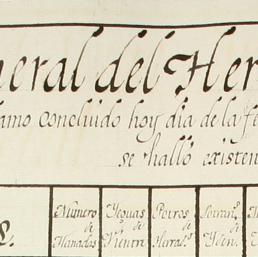 neral del Her
amo concluido hoy dia de la fe
se halló existen
Numero de Manados
Yeguas de Vientre
Potros de Herrad.ª
de Yden.